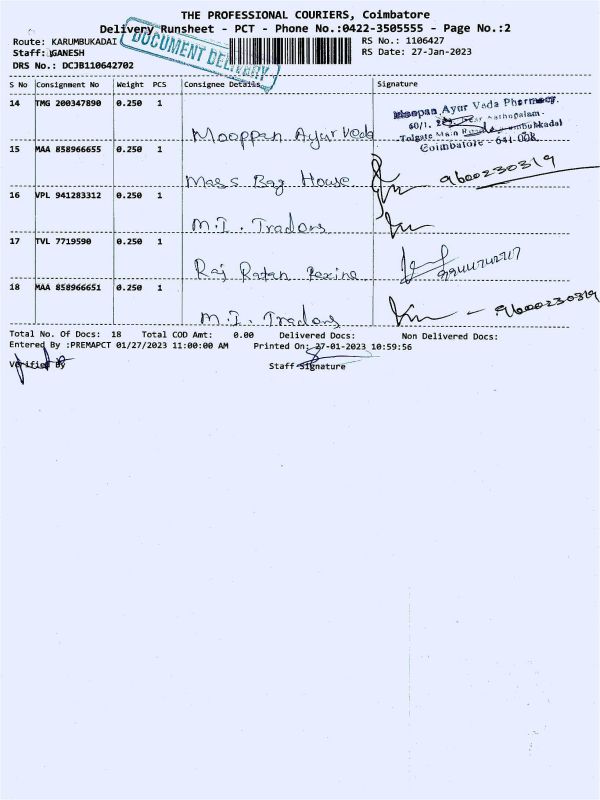 THE PROFESSIONAL COURIERS, Coimbatore
Delivery Runsheet - PCT - Phone No.:0422-3505555 - Page No.:2
Route: KARUMBUKADAI
RS No.: 1106427
Staff: GANESH
RS Date: 27-Jan-2023
DRS No.: DCJB110642702
DOCUMENT DELIVERY
S No Consignment No Weight PCS Consignee Details Signature
14 TMG 200347890 0.250 1
Mooppan Ayur Veda
Moopan Ayur Veda Pharmacy.
60/1.
Tolgate Main
Coimbatore - 641 008
15 MAA 858966655 0.250 1
Mass Bag House
9600230319
16 VPL 941283312 0.250 1
M.I. Traders
17 TVL 7719590 0.250 1
Raj Ratan Rexine
18 MAA 858966651 0.250 1
M.I. Traders
- 9600230319
Total No. Of Docs: 18 Total COD Amt: 0.00 Delivered Docs: Non Delivered Docs:
Entered By :PREMAPCT 01/27/2023 11:00:00 AM Printed On: 27-01-2023 10:59:56
Verified By Staff Signature